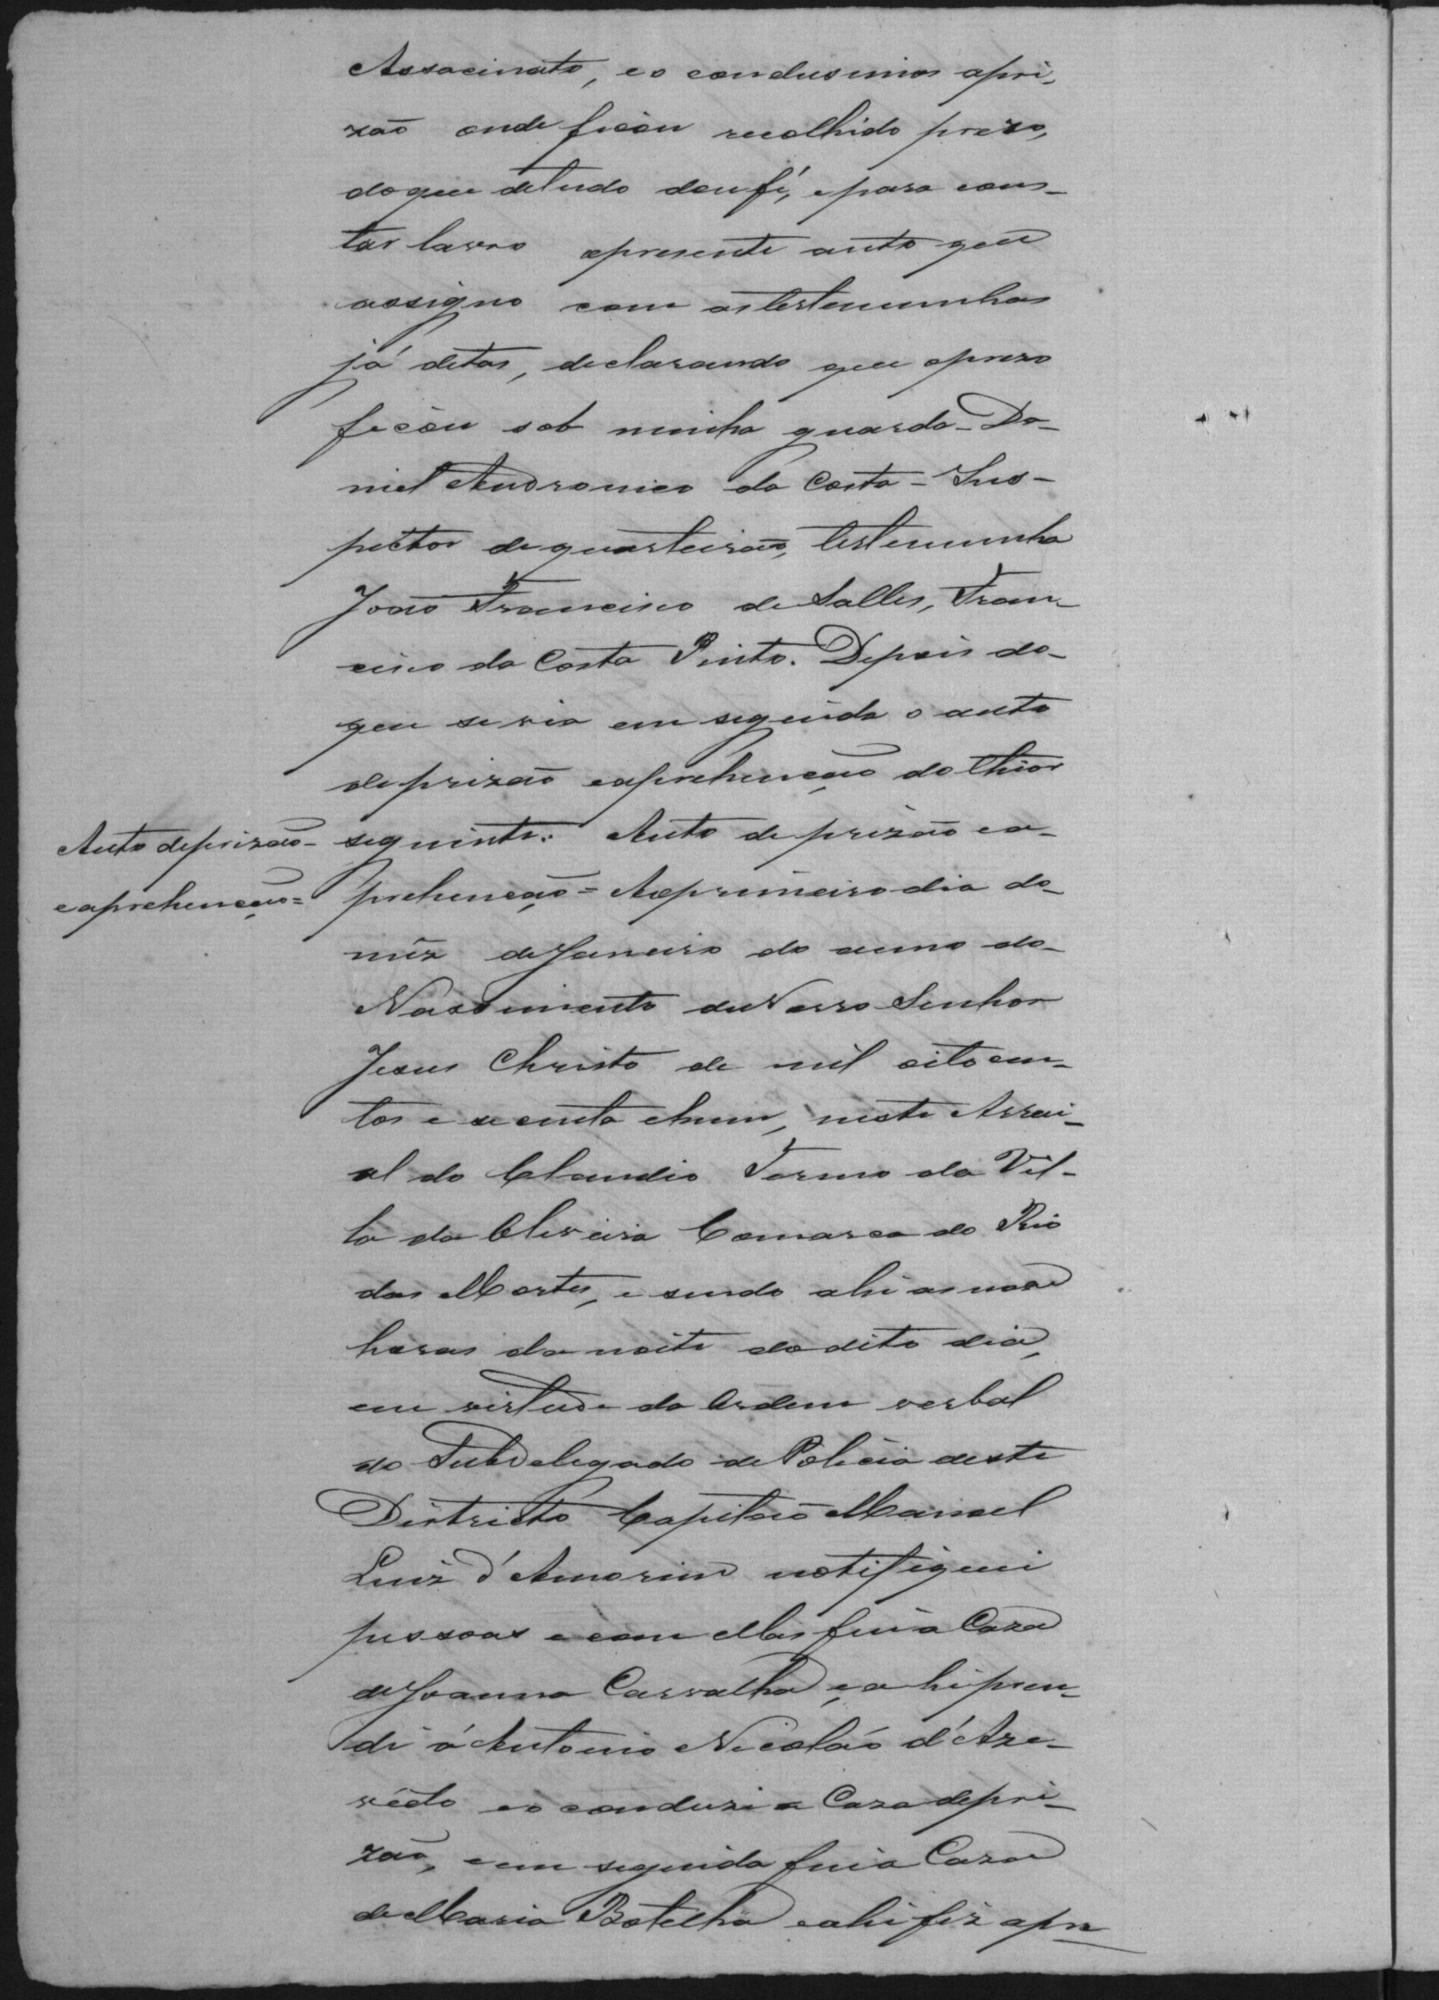 Assacinato, eo condusimos apri-
zaõ onde ficou recolhido prezo,
doque detudo doufé, epara cons-
tar lavro opresente auto que
assigno com astestemunhas
já ditas, declarando que oprezo
ficou sob minha guarda - Da-
niel Andronico da Costa - Ins-
pector dequarteiraõ, testemunha
Joaõ Francisco de Salles, Fran-
cisco da Costa Pinto. Depois do-
que se via em seguida o auto
deprizaõ eaprehençaõ do thior
seguinte: Auto deprizaõ ea-
Auto deprizaõ-
eaprehençaõ=
prehençaõ = Aoprimeiro dia do-
mêz deJaneiro do anno do-
Nascimento deNosso Senhor
Jesus Christo de mil oitocen-
tos e secenta ehum, neste Arrai-
al do Claudio Termo da Vil-
la da Oliveira Comarca do Rio
das Mortes, e sendo ahi as nove
horas da noite do dito dia,
em virtude da Ordem verbal
do Subdelegado de Policia deste
Districto Capitaõ Manoel
Luiz d'Amorim notifiquei
pessoas e com ellas fui a Caza
deJoanna Carvalha, e ahi pren-
di á Antonio Nicoláo d'Aze-
vêdo eo conduzi a Caza depri-
zaõ, eem seguida fui a Caza
deMaria Botelha eahi fiz apre